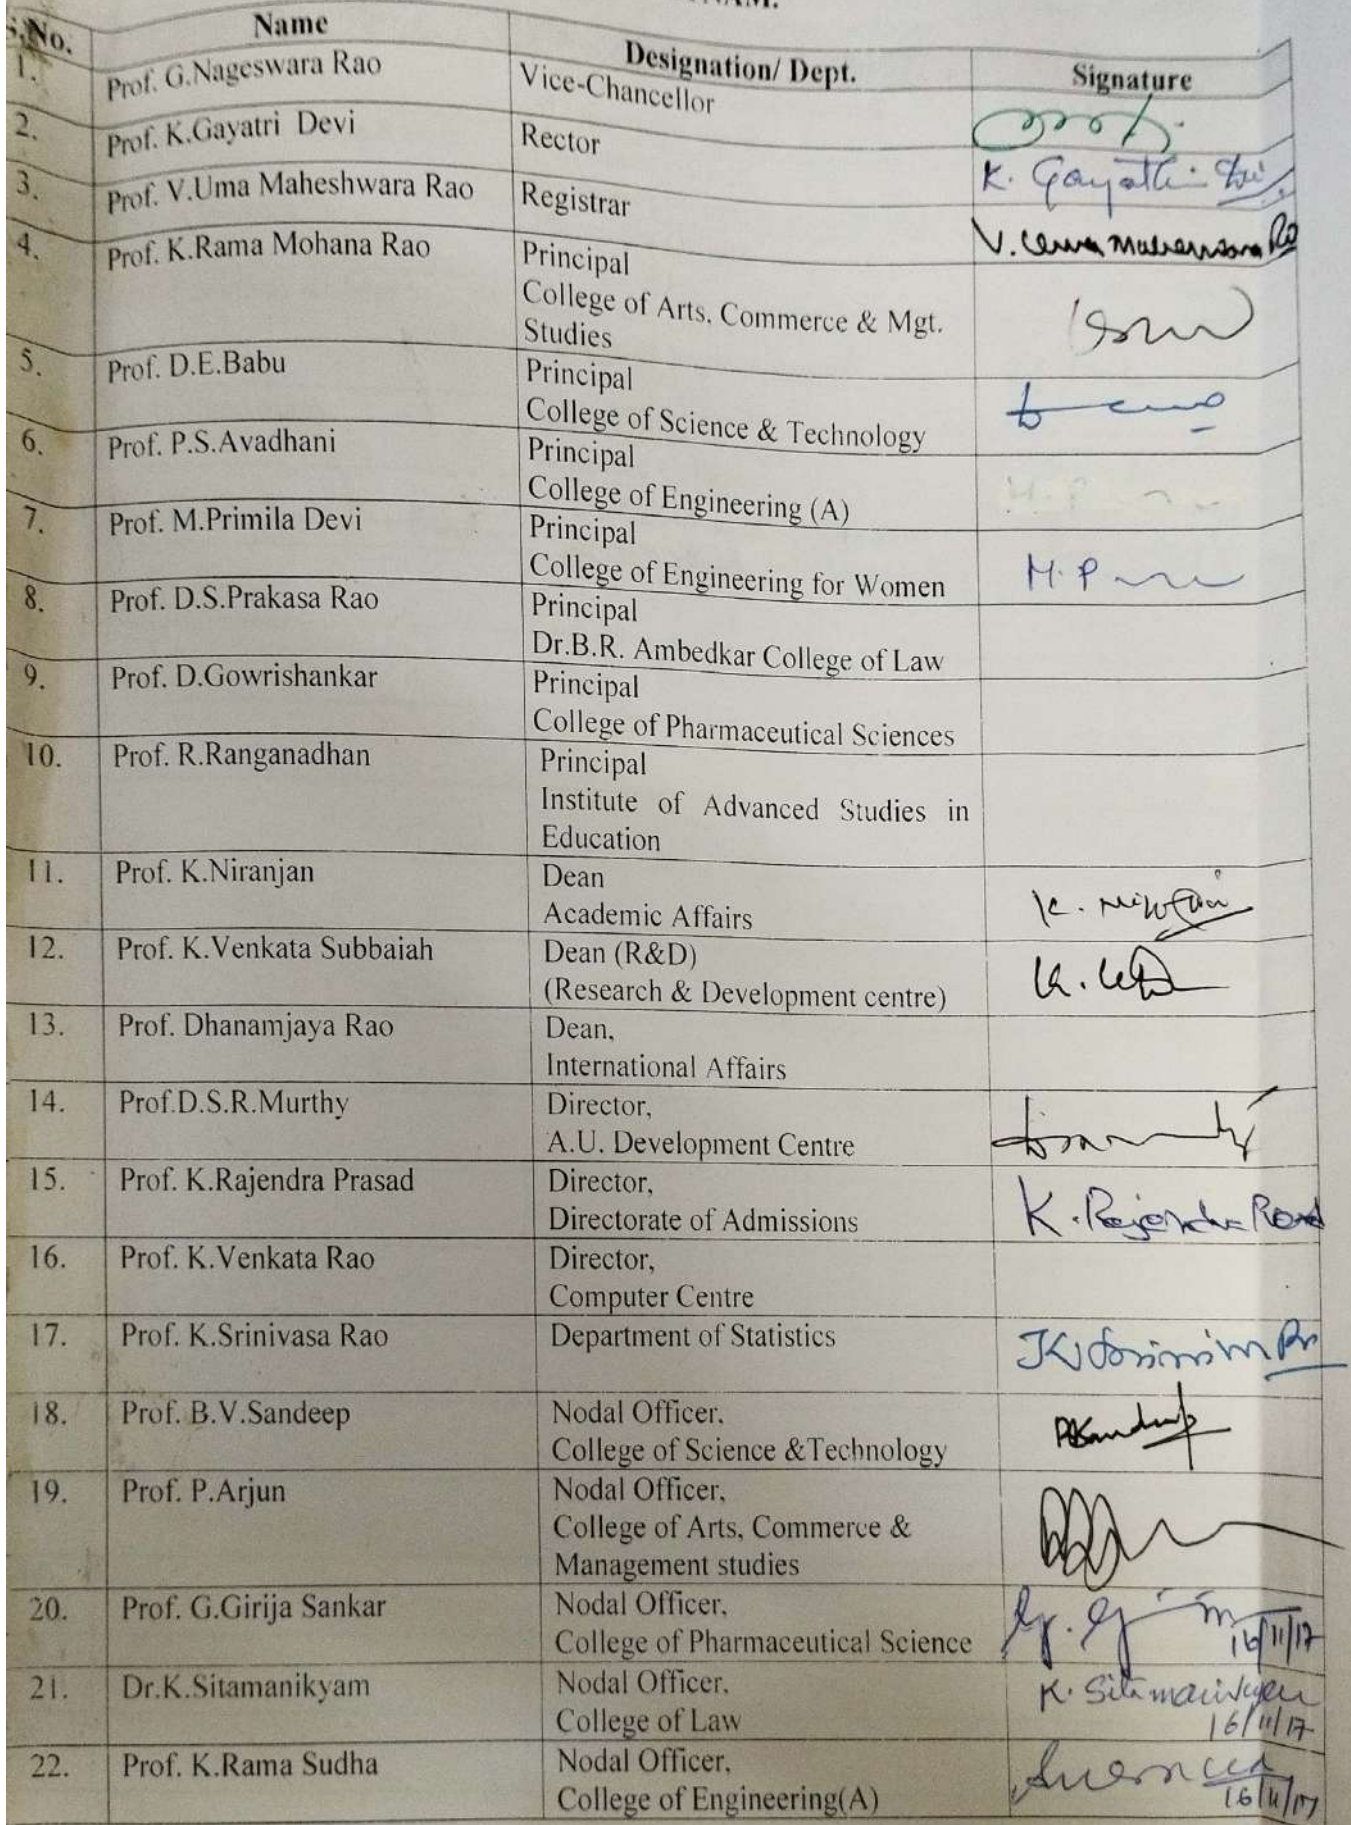 S.No. Name Designation/ Dept. Signature
1. Prof. G.Nageswara Rao Vice-Chancellor
2. Prof. K.Gayatri Devi Rector K. Gayathri Devi
3. Prof. V.Uma Maheshwara Rao Registrar V. Uma Maheswara Rao
4. Prof. K.Rama Mohana Rao Principal
College of Arts, Commerce & Mgt.
Studies
5. Prof. D.E.Babu Principal
College of Science & Technology
6. Prof. P.S.Avadhani Principal
College of Engineering (A)
7. Prof. M.Primila Devi Principal
College of Engineering for Women M. P
8. Prof. D.S.Prakasa Rao Principal
Dr.B.R. Ambedkar College of Law
9. Prof. D.Gowrishankar Principal
College of Pharmaceutical Sciences
10. Prof. R.Ranganadhan Principal
Institute of Advanced Studies in
Education
11. Prof. K.Niranjan Dean
Academic Affairs K. Niranjan
12. Prof. K.Venkata Subbaiah Dean (R&D)
(Research & Development centre) K.
13. Prof. Dhanamjaya Rao Dean,
International Affairs
14. Prof.D.S.R.Murthy Director,
A.U. Development Centre
15. Prof. K.Rajendra Prasad Director,
Directorate of Admissions K. Rajendra Prasad
16. Prof. K.Venkata Rao Director,
Computer Centre
17. Prof. K.Srinivasa Rao Department of Statistics
18. Prof. B.V.Sandeep Nodal Officer,
College of Science &Technology
19. Prof. P.Arjun Nodal Officer,
College of Arts, Commerce &
Management studies
20. Prof. G.Girija Sankar Nodal Officer,
College of Pharmaceutical Science 16/11/17
21. Dr.K.Sitamanikyam Nodal Officer, K. Sitamanikyam
College of Law 16/11/17
22. Prof. K.Rama Sudha Nodal Officer,
College of Engineering(A) 16/11/17